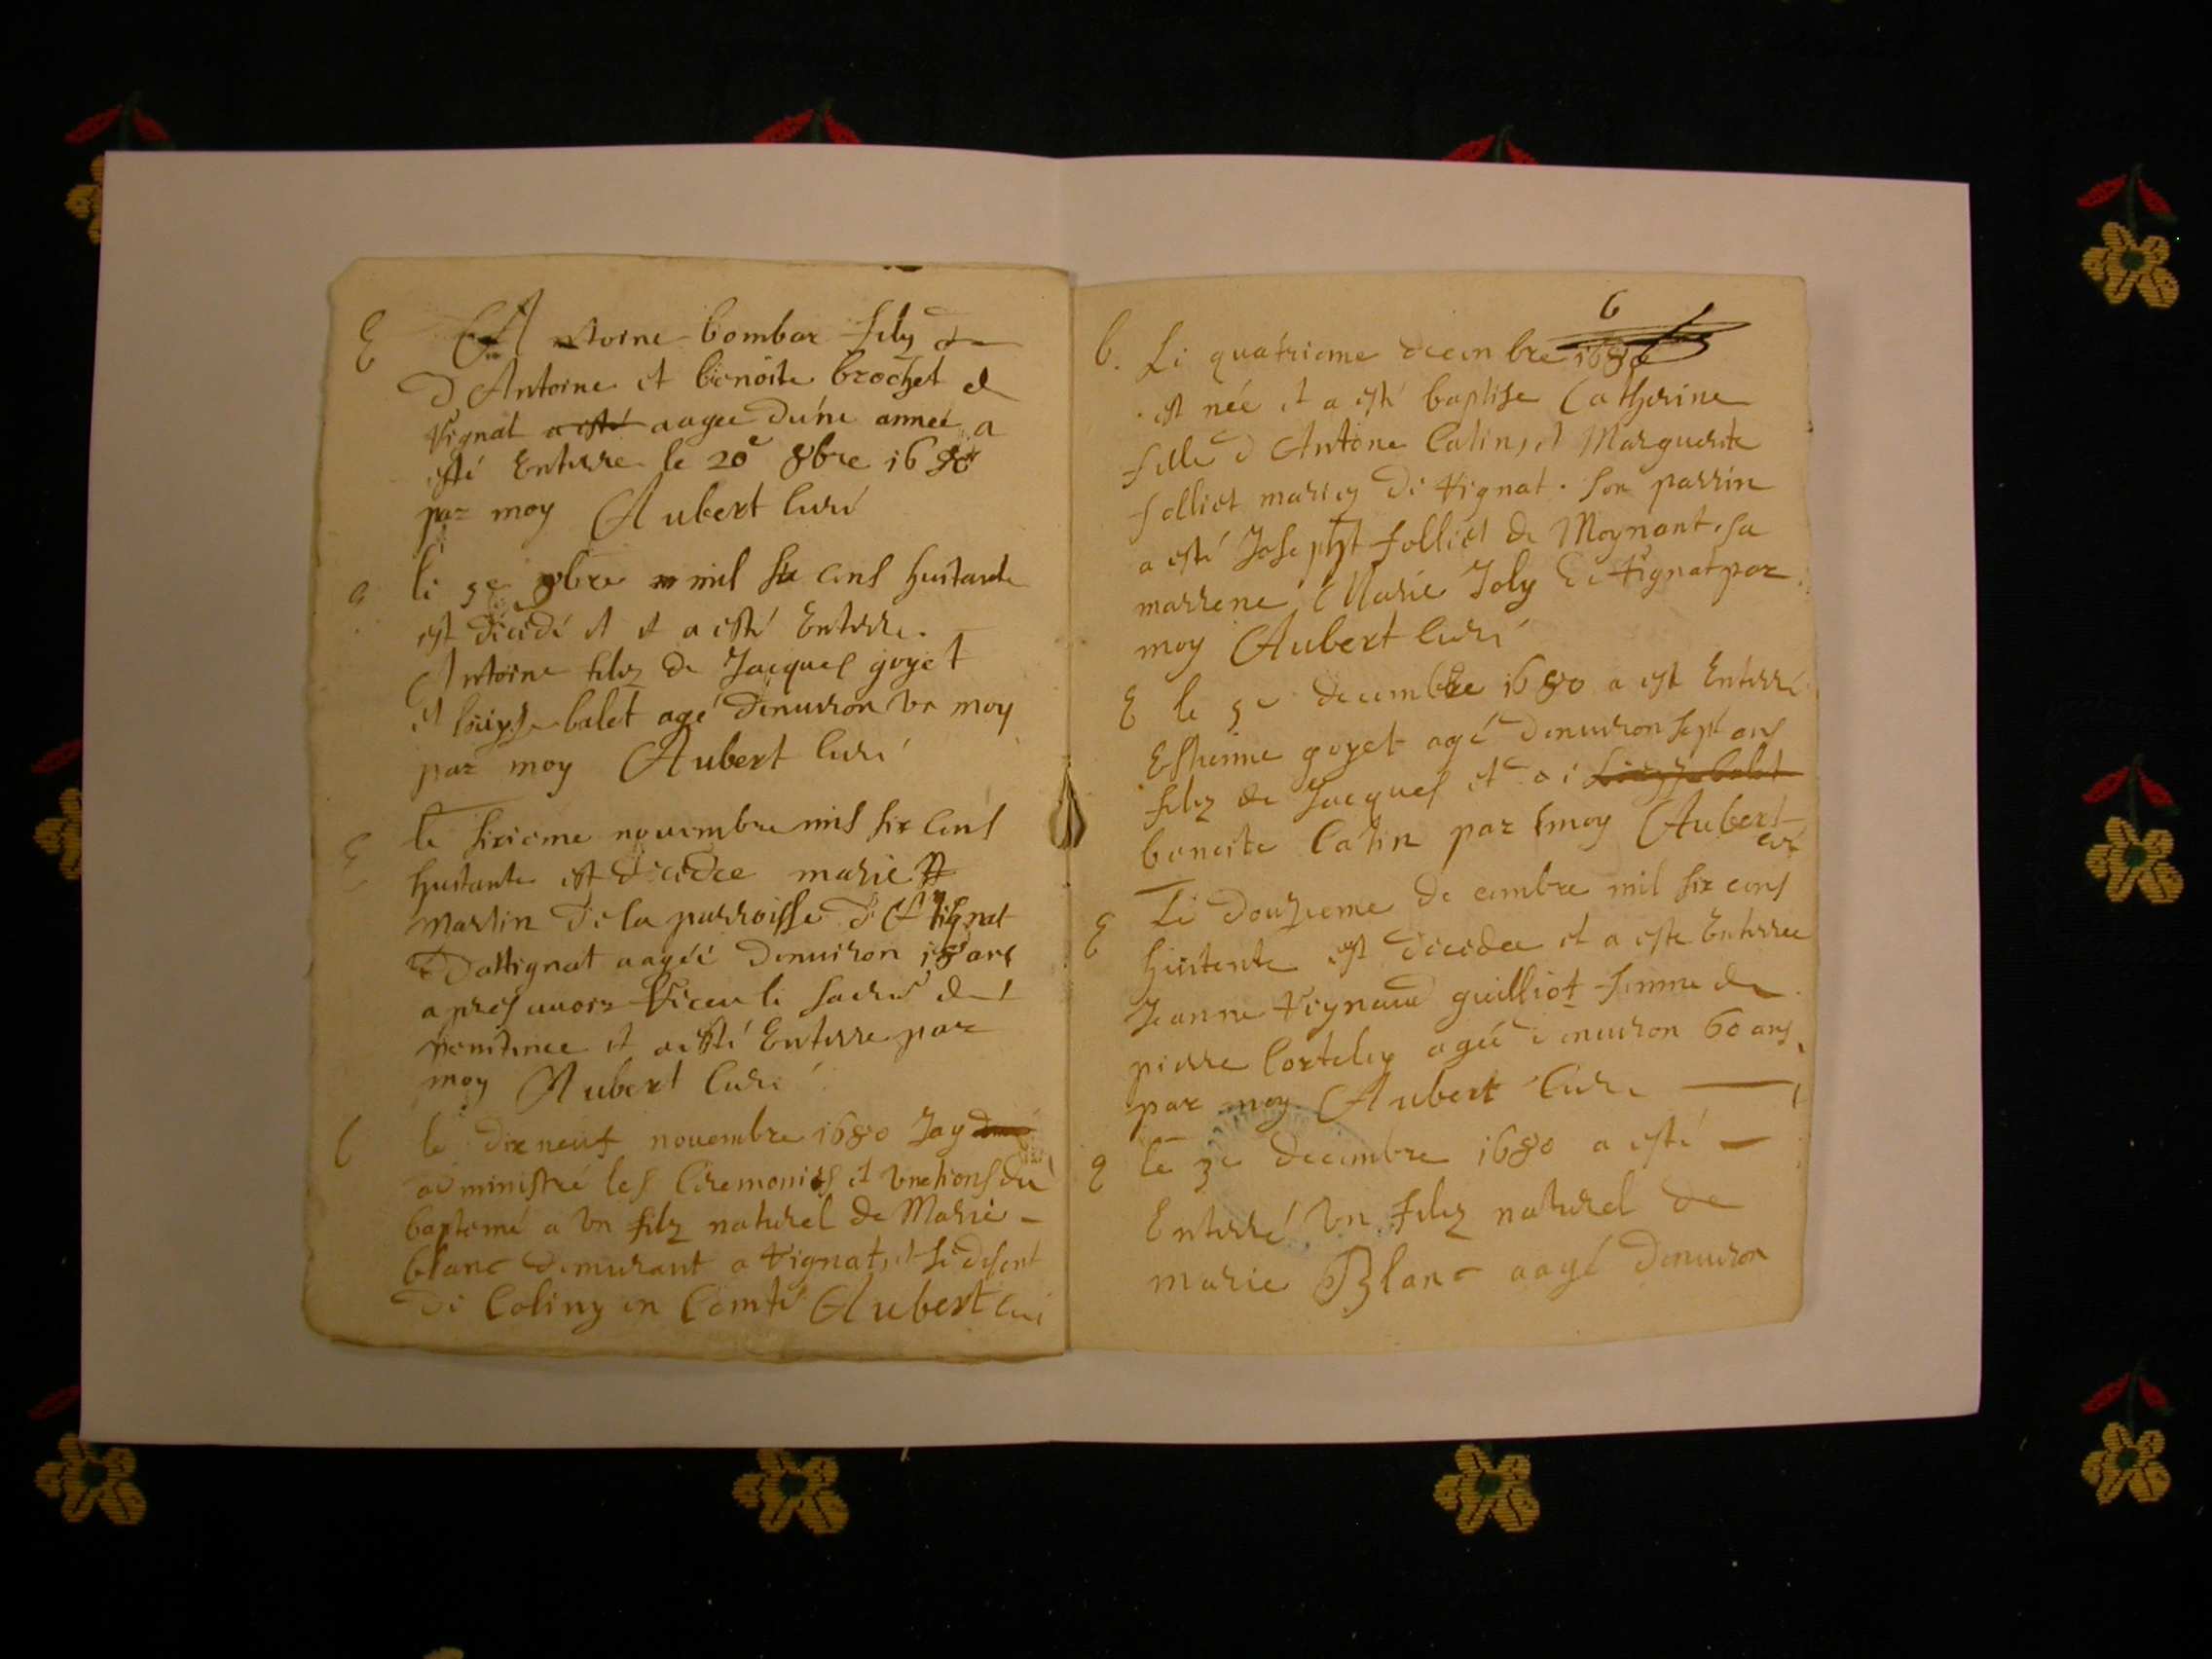 E Antoine bombar filz
D Antoine et benoite brochet de
Vignat a esté aagee d'une anneé a
esté Enterre le 20e 8bre 1680
par moy Aubert Curé
le 5e 9bre mil six cens huitante
est décédé et et a esté Enterre.
Antoine filz de Jacques goyet
et balet agé denuiron un moy
par moy Aubert Curé
E le sixieme nouembre mil six cens
huitante est décédee marie
Martin de la parroisse d
Dattignat aagéé denuiron 18 ans
apres auoir Receu le sacre de
penitence et a esté Enterre par
moy Aubert Curé
b le dix neuf nouembre 1680 Jay
administré les Ceremonies et unctions du
baptemé a un filz naturel de Marie
blanc demurant a Vignat, et se disent
de Coliny en Comté Aubert Curé
6
b. Le quatrieme decembre 1680
est née et a esté baptise Catherine
fille d Antoine Catin, et Marguerite
folliet mariez de Vignat. son parrin
a esté Josepht folliet de Moynant. sa
marrene Marie Joly de Vignat par
moy Aubert Curé
E le 5e decembre 1680 a est Enterré
Estienne goyet agé denuiron sept ans
filz de Jacques et
benoite Catin par moy Aubert
Curé
E Le douzieme decembre mil six cens
huitente est décédee et a este Enterree
Jeanne guilliot femme de
pierre Corteley agéé denuiron 60 ans
par moy Aubert Curé
E le 3e decembre 1680 a esté
Enterré un filz naturel de
marie Blanc aagé denuiron